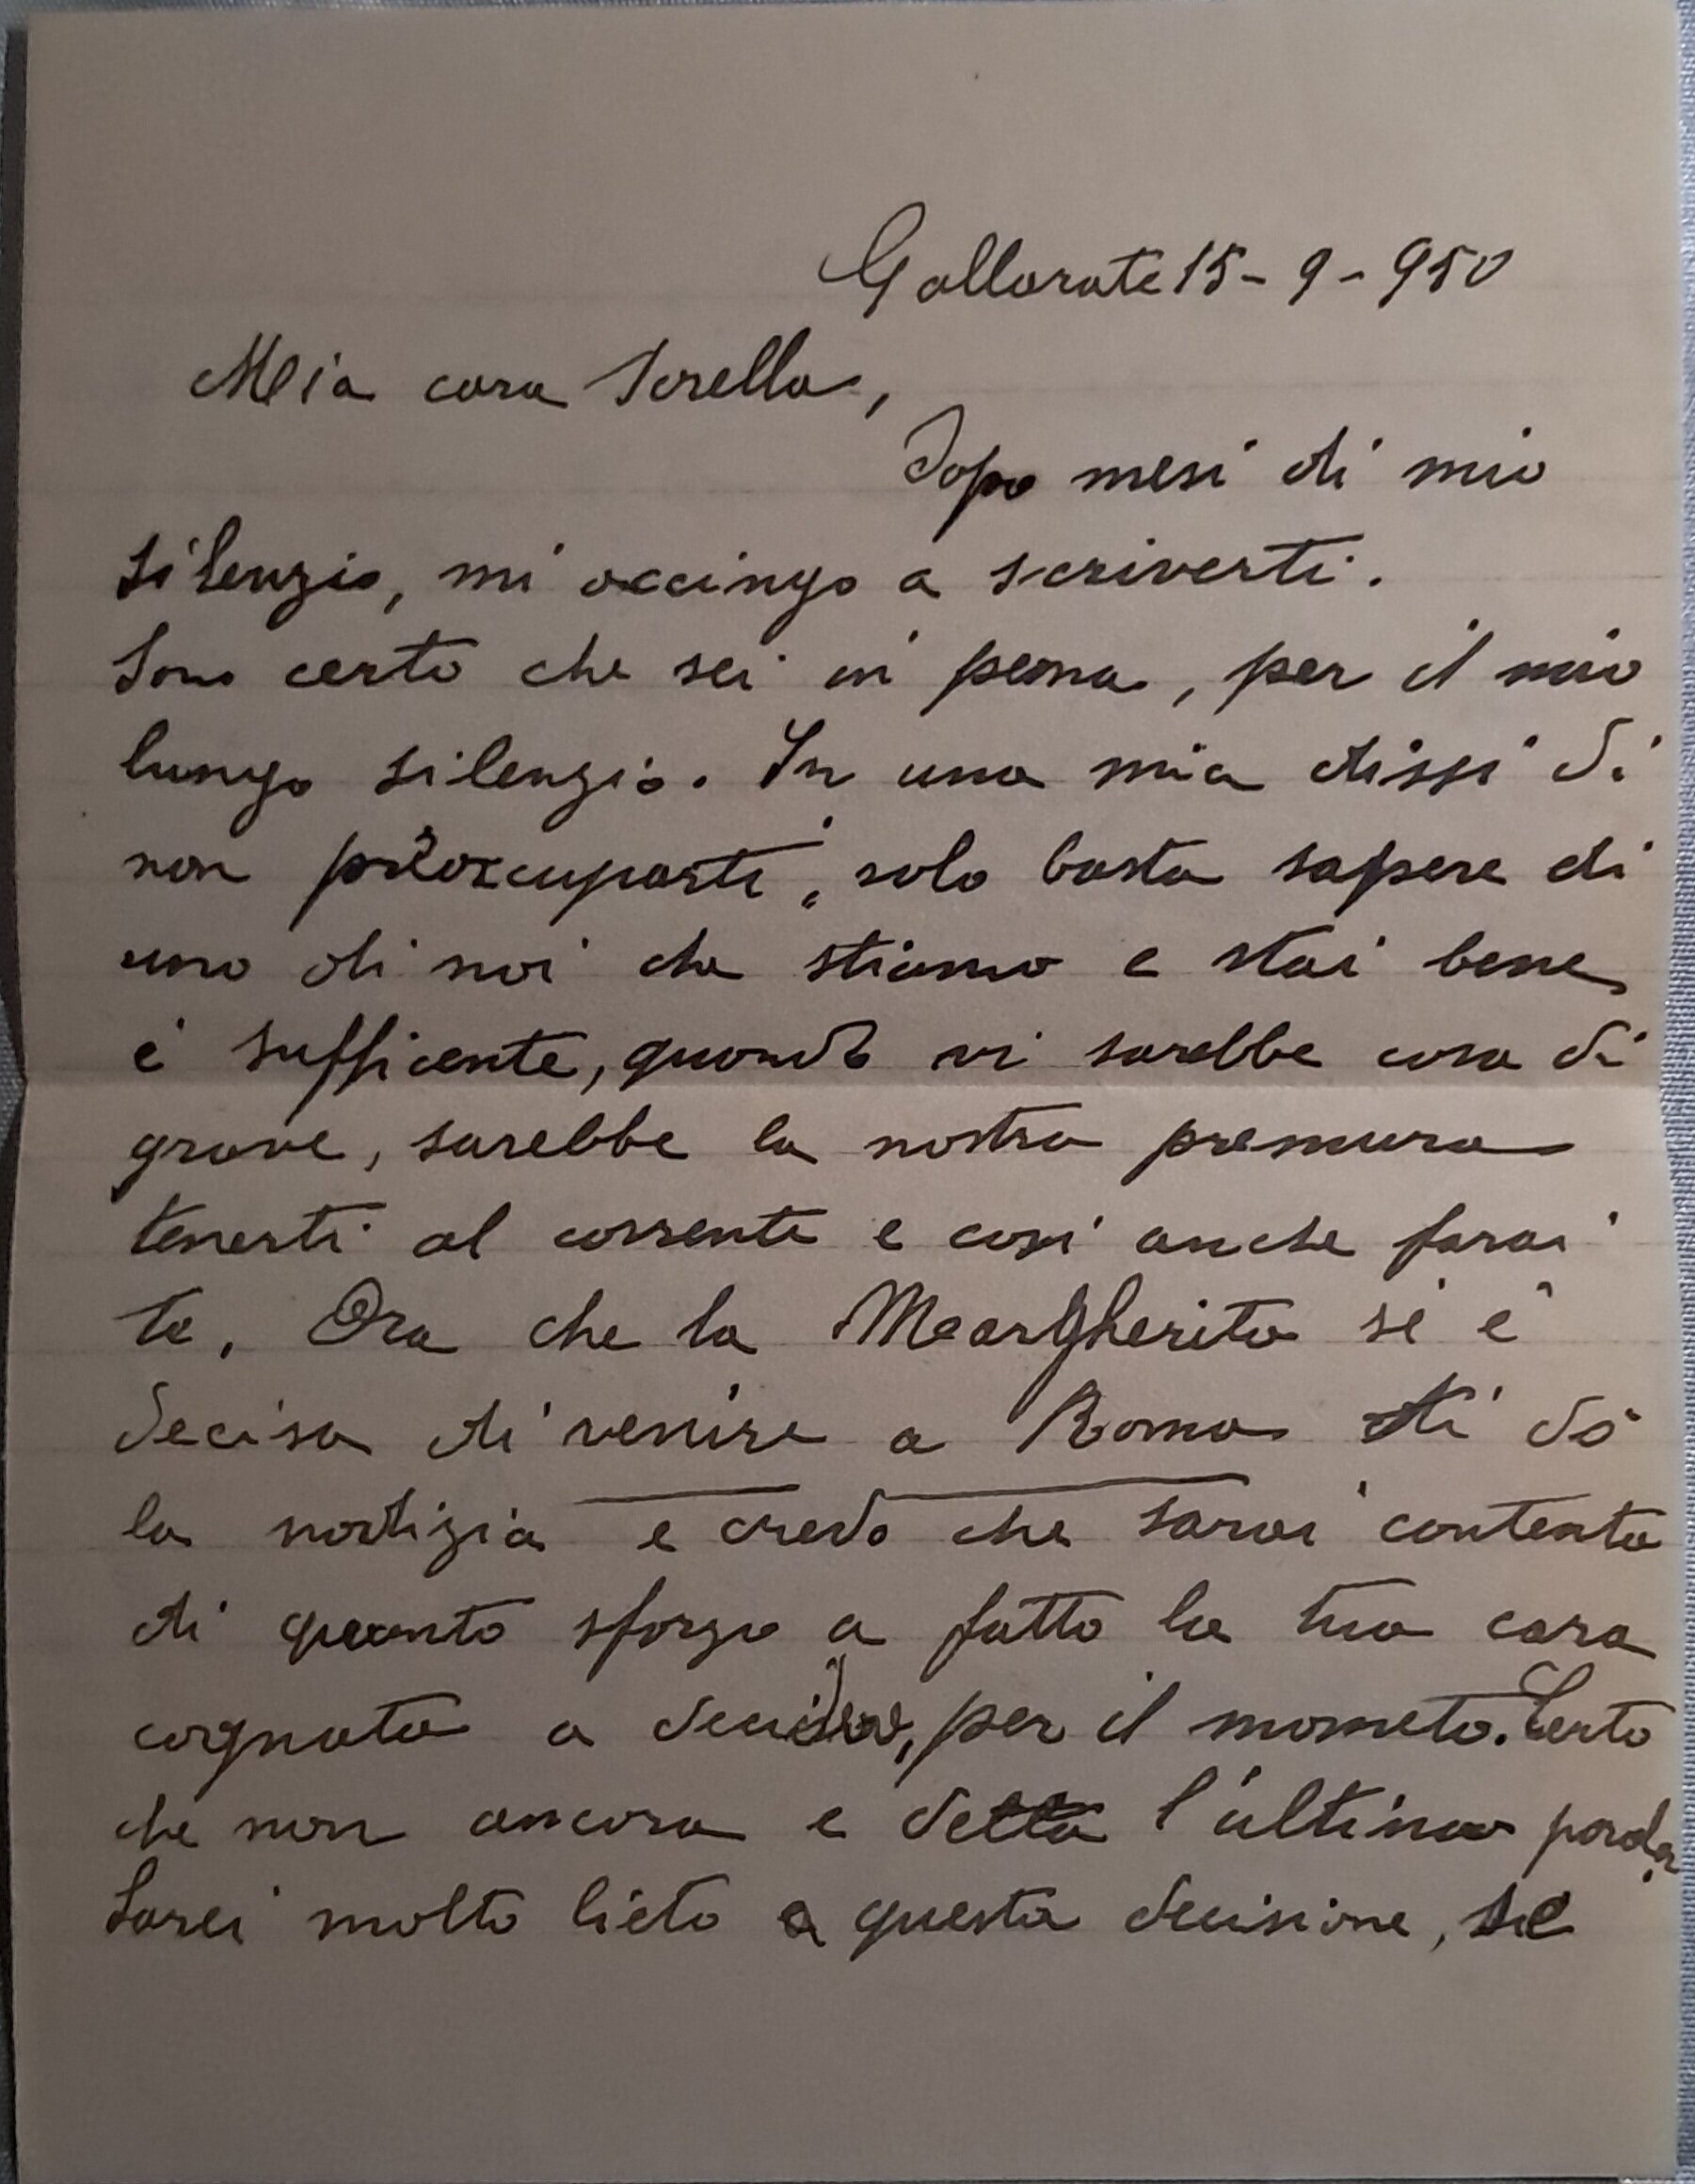 Gallarate 15-9-950
Mia cara Sorella,
Dopo mesi di mio
silenzio, mi accingo a scriverti.
Sono certo che sei in pena, per il mio
lungo silenzio. In una mia dissi di
non preoccuparti, solo basta sapere di
uno di noi che stiamo e stai bene
è sufficente, quando vi sarebbe cosa di
grave, sarebbe la nostra premura
tenerti al corrente e cosi anche farai
te. Ora che la Margherita si è
decisa di venire a Roma ti dò
la notizia e credo che sarai contenta
di quanto sforzo a fatto la tua cara
cognata a decidere, per il mometo. Certo
che non ancora e detta l'ultima parola.
Sarei molto lieto a questa decisione, se